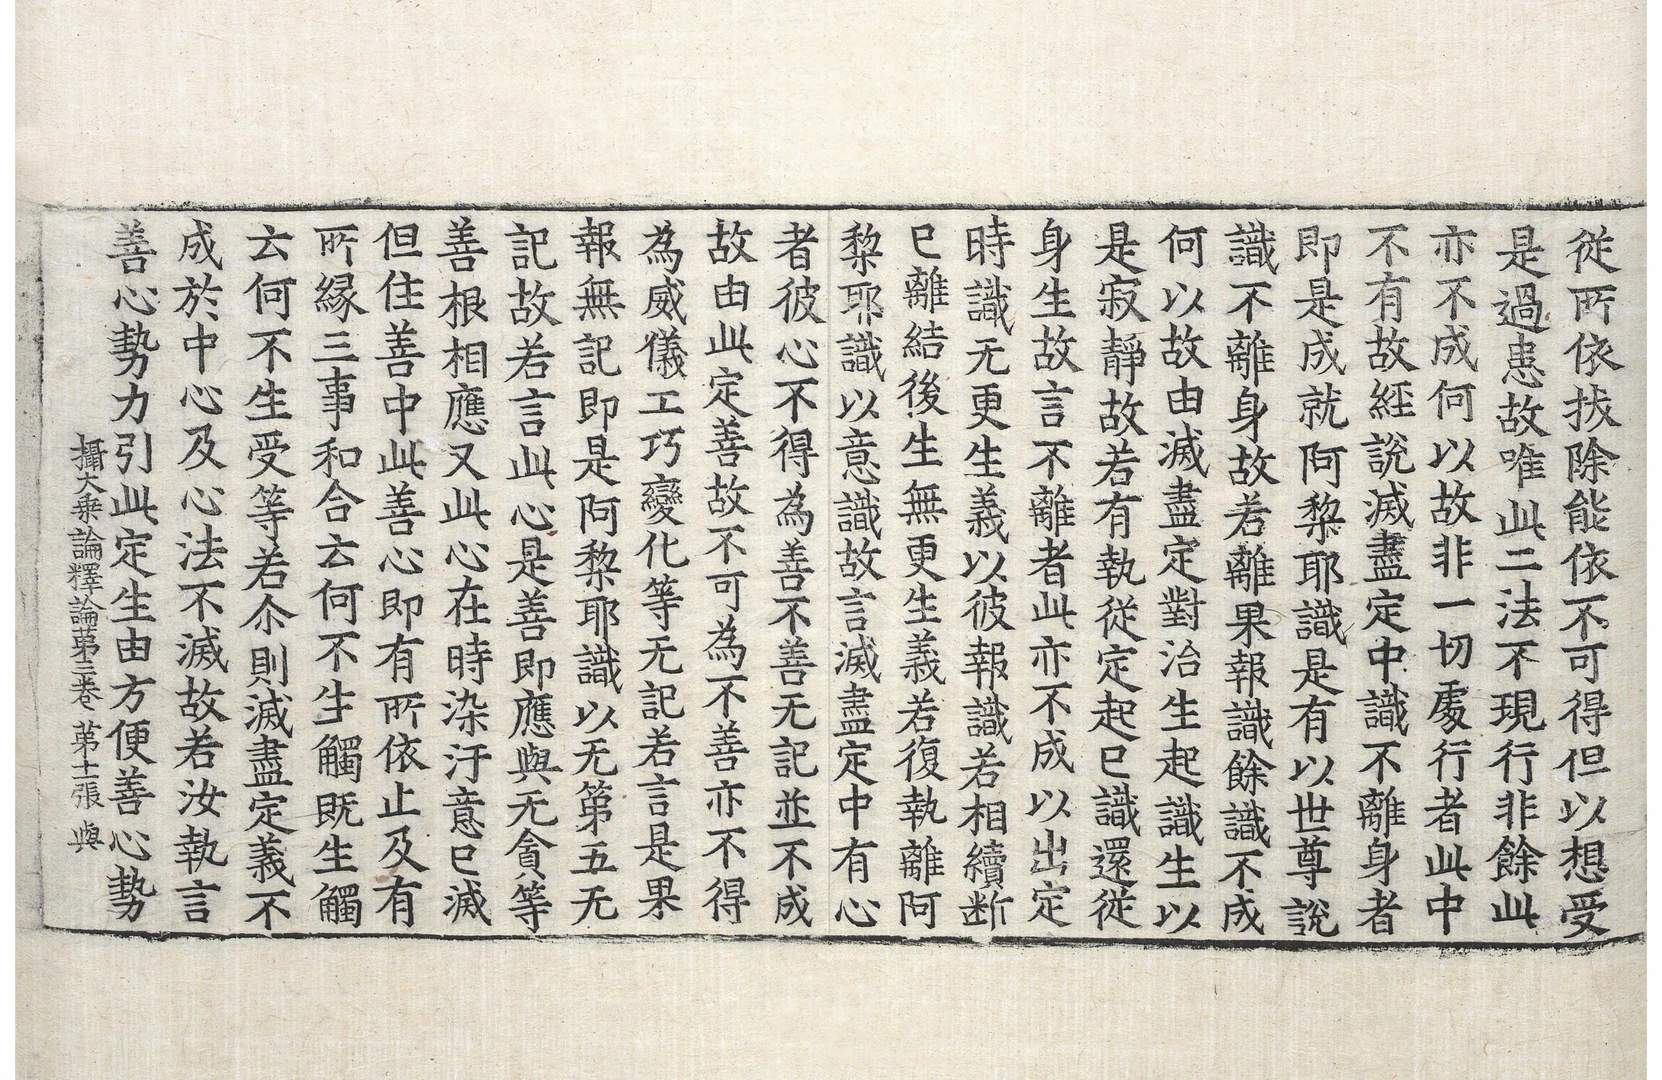 從所依拔除能依不可得但以想受
是過患故唯此二法不現行非餘此
亦不成何以故非一切處行者此中
不有故經說滅盡定中識不離身者
即是成就阿黎耶識是有以世尊說
識不離身故若離果報識餘識不成
何以故由滅盡定對治生起識生以
是寂靜故若有執從定起已識還從
身生故言不離者此亦不成以出定
時識无更生義以彼報識若相續斷
已離結後生無更生義若復執離阿
黎耶識以意識故言滅盡定中有心
者彼心不得為善不善无記並不成
故由此定善故不可為不善亦不得
為威儀工巧變化等无記若言是果
報無記即是阿黎耶識以无第五无
記故若言此心是善即應與无貪等
善根相應又此心在時染汙意已滅
但住善中此善心即有所依止及有
所緣三事和合云何不生觸既生觸
云何不生受等若尒則滅盡定義不
成於中心及心法不滅故若汝執言
善心勢力引此定生由方便善心勢
攝大乘論釋論第三卷 第十一張 與